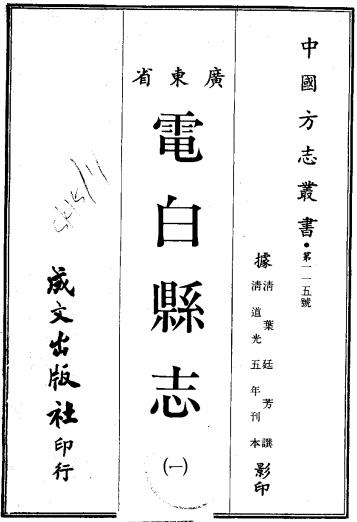 中國方志叢書·第一一五號
據清葉廷芳撰
清道光五年刊本影印
廣東省
電白縣志
(一)
成文出版社印行